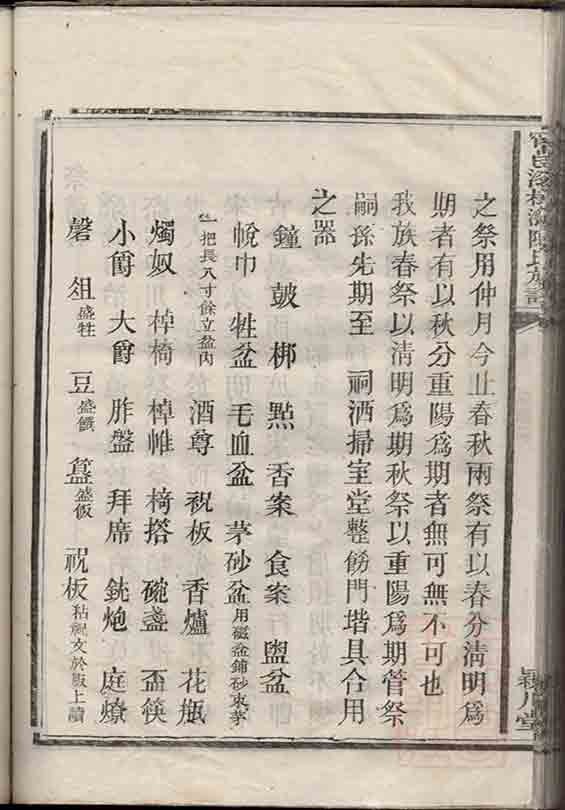 之祭用仲月今止春秋兩祭有以春分淸明爲
期者有以秋分重陽爲期者無可無不可也
我族春祭以淸明爲期秋祭以重陽爲期管祭
嗣孫先期至 祠洒掃室堂整飭門堦具合用
之器
鐘 鼓 梆 㸃 香案 食案 盥盆
帨巾 牲盆 毛血盆 茅砂盆用磁盆鋪砂束茅
一把長八寸餘立盆內 酒尊 祝板 香爐 花瓶
燭奴 棹椅 棹帷 椅搭 碗盞 盃筷
小爵 大爵 胙盤 拜席 銃炮 庭燎
磬 俎盛牲 豆盛饌 簋盛飯 祝板粘祝文於版上讀
陳氏族譜
潁川堂